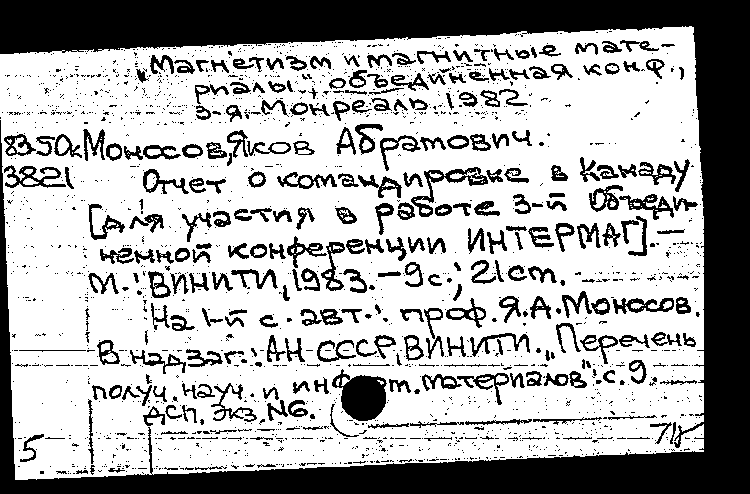 „Магнетизм и магнитные мате-
риалы", объединенная конф.,
3-я. Монреаль. 1982
83-50к Моносов, Яков Абрамович.
3821 Отчет о командировке в Канаду
[для участия в работе 3-й Объеди-
ненной конференции ИНТЕРМАГ]. —
М.: ВИНИТИ, 1983. — 9 с.; 21 см.
На 1-й с. авт.: проф. Я.А. Моносов.
В надзаг.: АН СССР, ВИНИТИ. „Перечень
получ. науч. и информ. материалов": с. 9.
ДСП. Экз. №6.
5